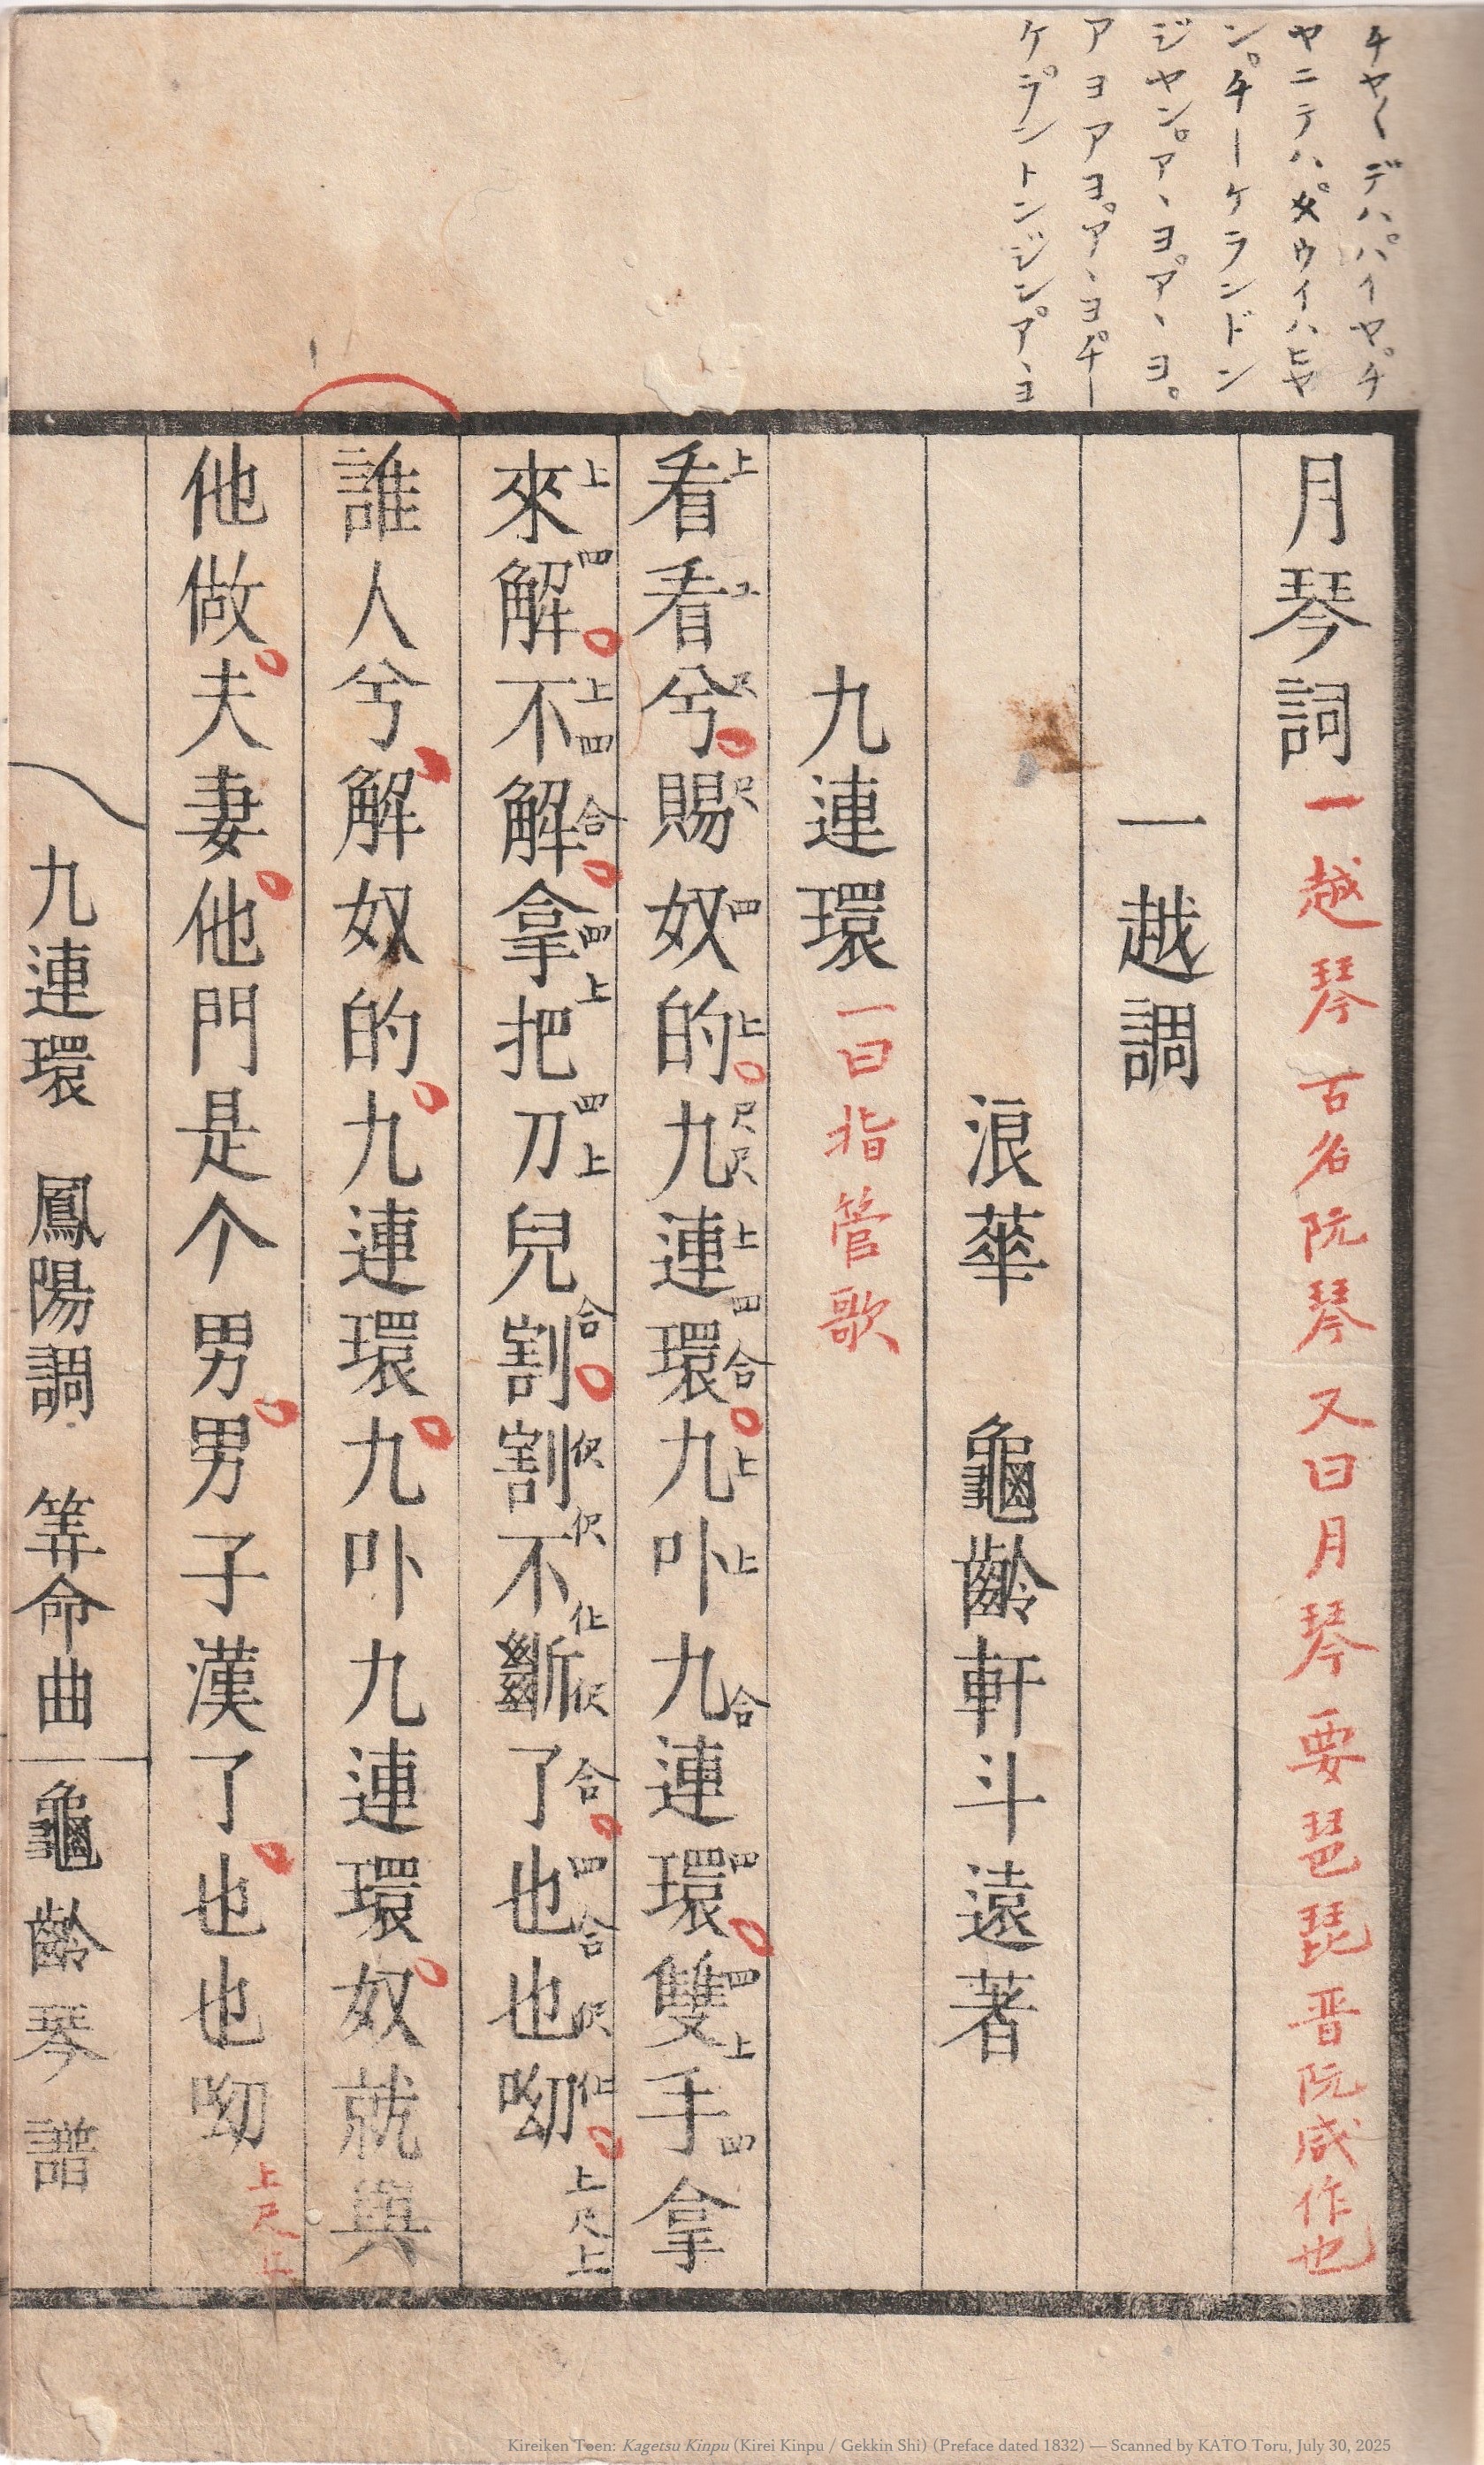 チヤ〱デハ゜パイヤ゜チ
ヤニテハ゜女ウイハヒヤ
ン゜チーケランドン
ジヤン゜アヽヨ゜アヽヨ。
アヨアヨ゜アヽヨ゜チー
ケ゜ラントンジン゜アヽヨ
月琴詞 一越琴古名阮琴又曰月琴要琶琵晋阮咸作也
一越調
浪華 龜齡軒斗遠著
九連環 一曰指管歌
看看兮賜奴的九連環九卟九連環雙手拿
上工尺尺四上尺尺上四合上上合四四上四
來解不解拿把刀兒割割不斷了也也呦
上四上四合四上四上合伬伬仩伬合四合伬仩上尺上
誰人兮解奴的九連環九卟九連環奴就與
他做夫妻他門是个男男子漢了也也呦
上尺上
九連環 鳳陽調 筭命曲 一 龜齡琴譜
Kireiken Toen: Kagetsu Kinpu (Kirei Kinpu / Gekkin Shi) (Preface dated 1832) — Scanned by KATO Toru, July 30, 2025